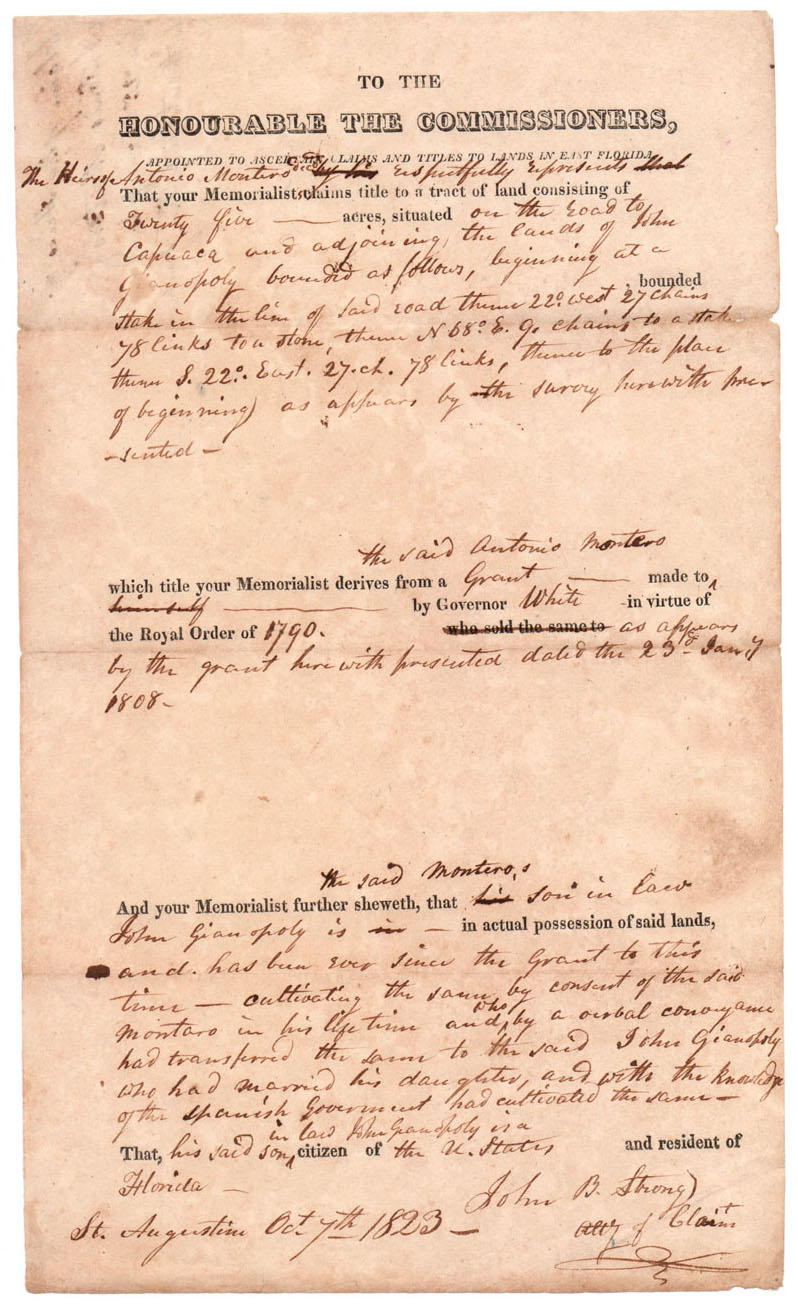 TO THE
HONOURABLE THE COMMISSIONERS,
APPOINTED TO ASCERTAIN CLAIMS AND TITLES TO LANDS IN EAST FLORIDA.
The Heirs of Antonio Montero decd by his respectfully represents that
That your Memorialist claims title to a tract of land consisting of
Twenty five acres, situated on the road to
Capuaca and adjoining the lands of John
Gianopoly bounded as follows, beginning at a
, bounded
stake in the line of said road thence 22° west 27 chains
78 links to a stone, thence N 68° E. 9 chains to a stake
thence S. 22°. East. 27. ch. 78 links, thence to the place
of beginning) as appears by the survey herewith pre-
-sented -
the said Antonio Montero
which title your Memorialist derives from a Grant made to ^
himself by Governor White in virtue of
the Royal Order of 1790. who sold the same to as appears
by the grant herewith presented dated the 23d Jany
1808 -
the said Montero,s
And your Memorialist further sheweth, that his son in law
John Gianopoly is in - in actual possession of said lands,
and. has been ever since the Grant to this
time - cultivating the same by consent of the said
Montaro in his life time and, who by a verbal conveyance
had transferred the same to the said John Gianopoly
who had married his daughter, and with the knowledge
of the Spanish Goverment had cultivated the same -
in law John Gianopoly is a
That, his said son ^ citizen of the U. States and resident of
Florida -
John B. Strong
St. Augustine Oct. 7th 1823 - atty of Claimt